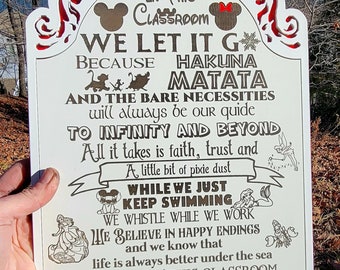 In This
Classroom
WE LET IT GO
Because HAKUNA
MATATA
AND THE BARE NECESSITIES
will always be our guide
TO INFINITY AND BEYOND
All it takes is faith, trust and
A little bit of pixie dust
WHILE WE JUST
KEEP SWIMMING
WE WHISTLE WHILE WE WORK
We Believe in happy endings
and we know that
life is always better under the sea
CLASSROOM